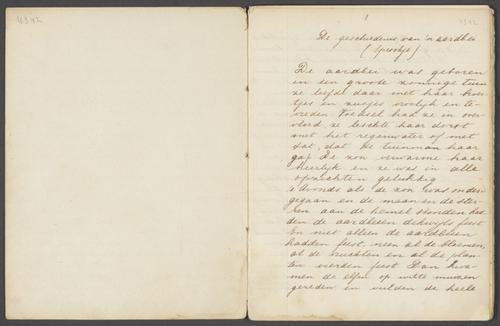 4942
1
4942
De geschiedenis van 'n aardbei
(Sprookje)
De aardbei was geboren
in een groote zonnige tuin
ze leefde daar met haar broer-
tjes en zusjes vroolijk en te-
vreden Voedsel had ze in over-
vloed, ze leschte haar dorst
met het regenwater of met
dat, dat de tuinman haar
gaf De zon verwarmde haar
heerlijk en ze was in alle
opzichten gelukkig
's Avonds als de zon was onder
gegaan en de maan en de ster-
ren aan de hemel stonden had-
den de aardbeien dikwijls feest
En niet alleen de aardbeien
hadden feest neen al de bloemen,
al de vruchten en al de plan-
ten vierden feest Dan kwa-
men de elfen op witte muizen
gereden en vulden de heele